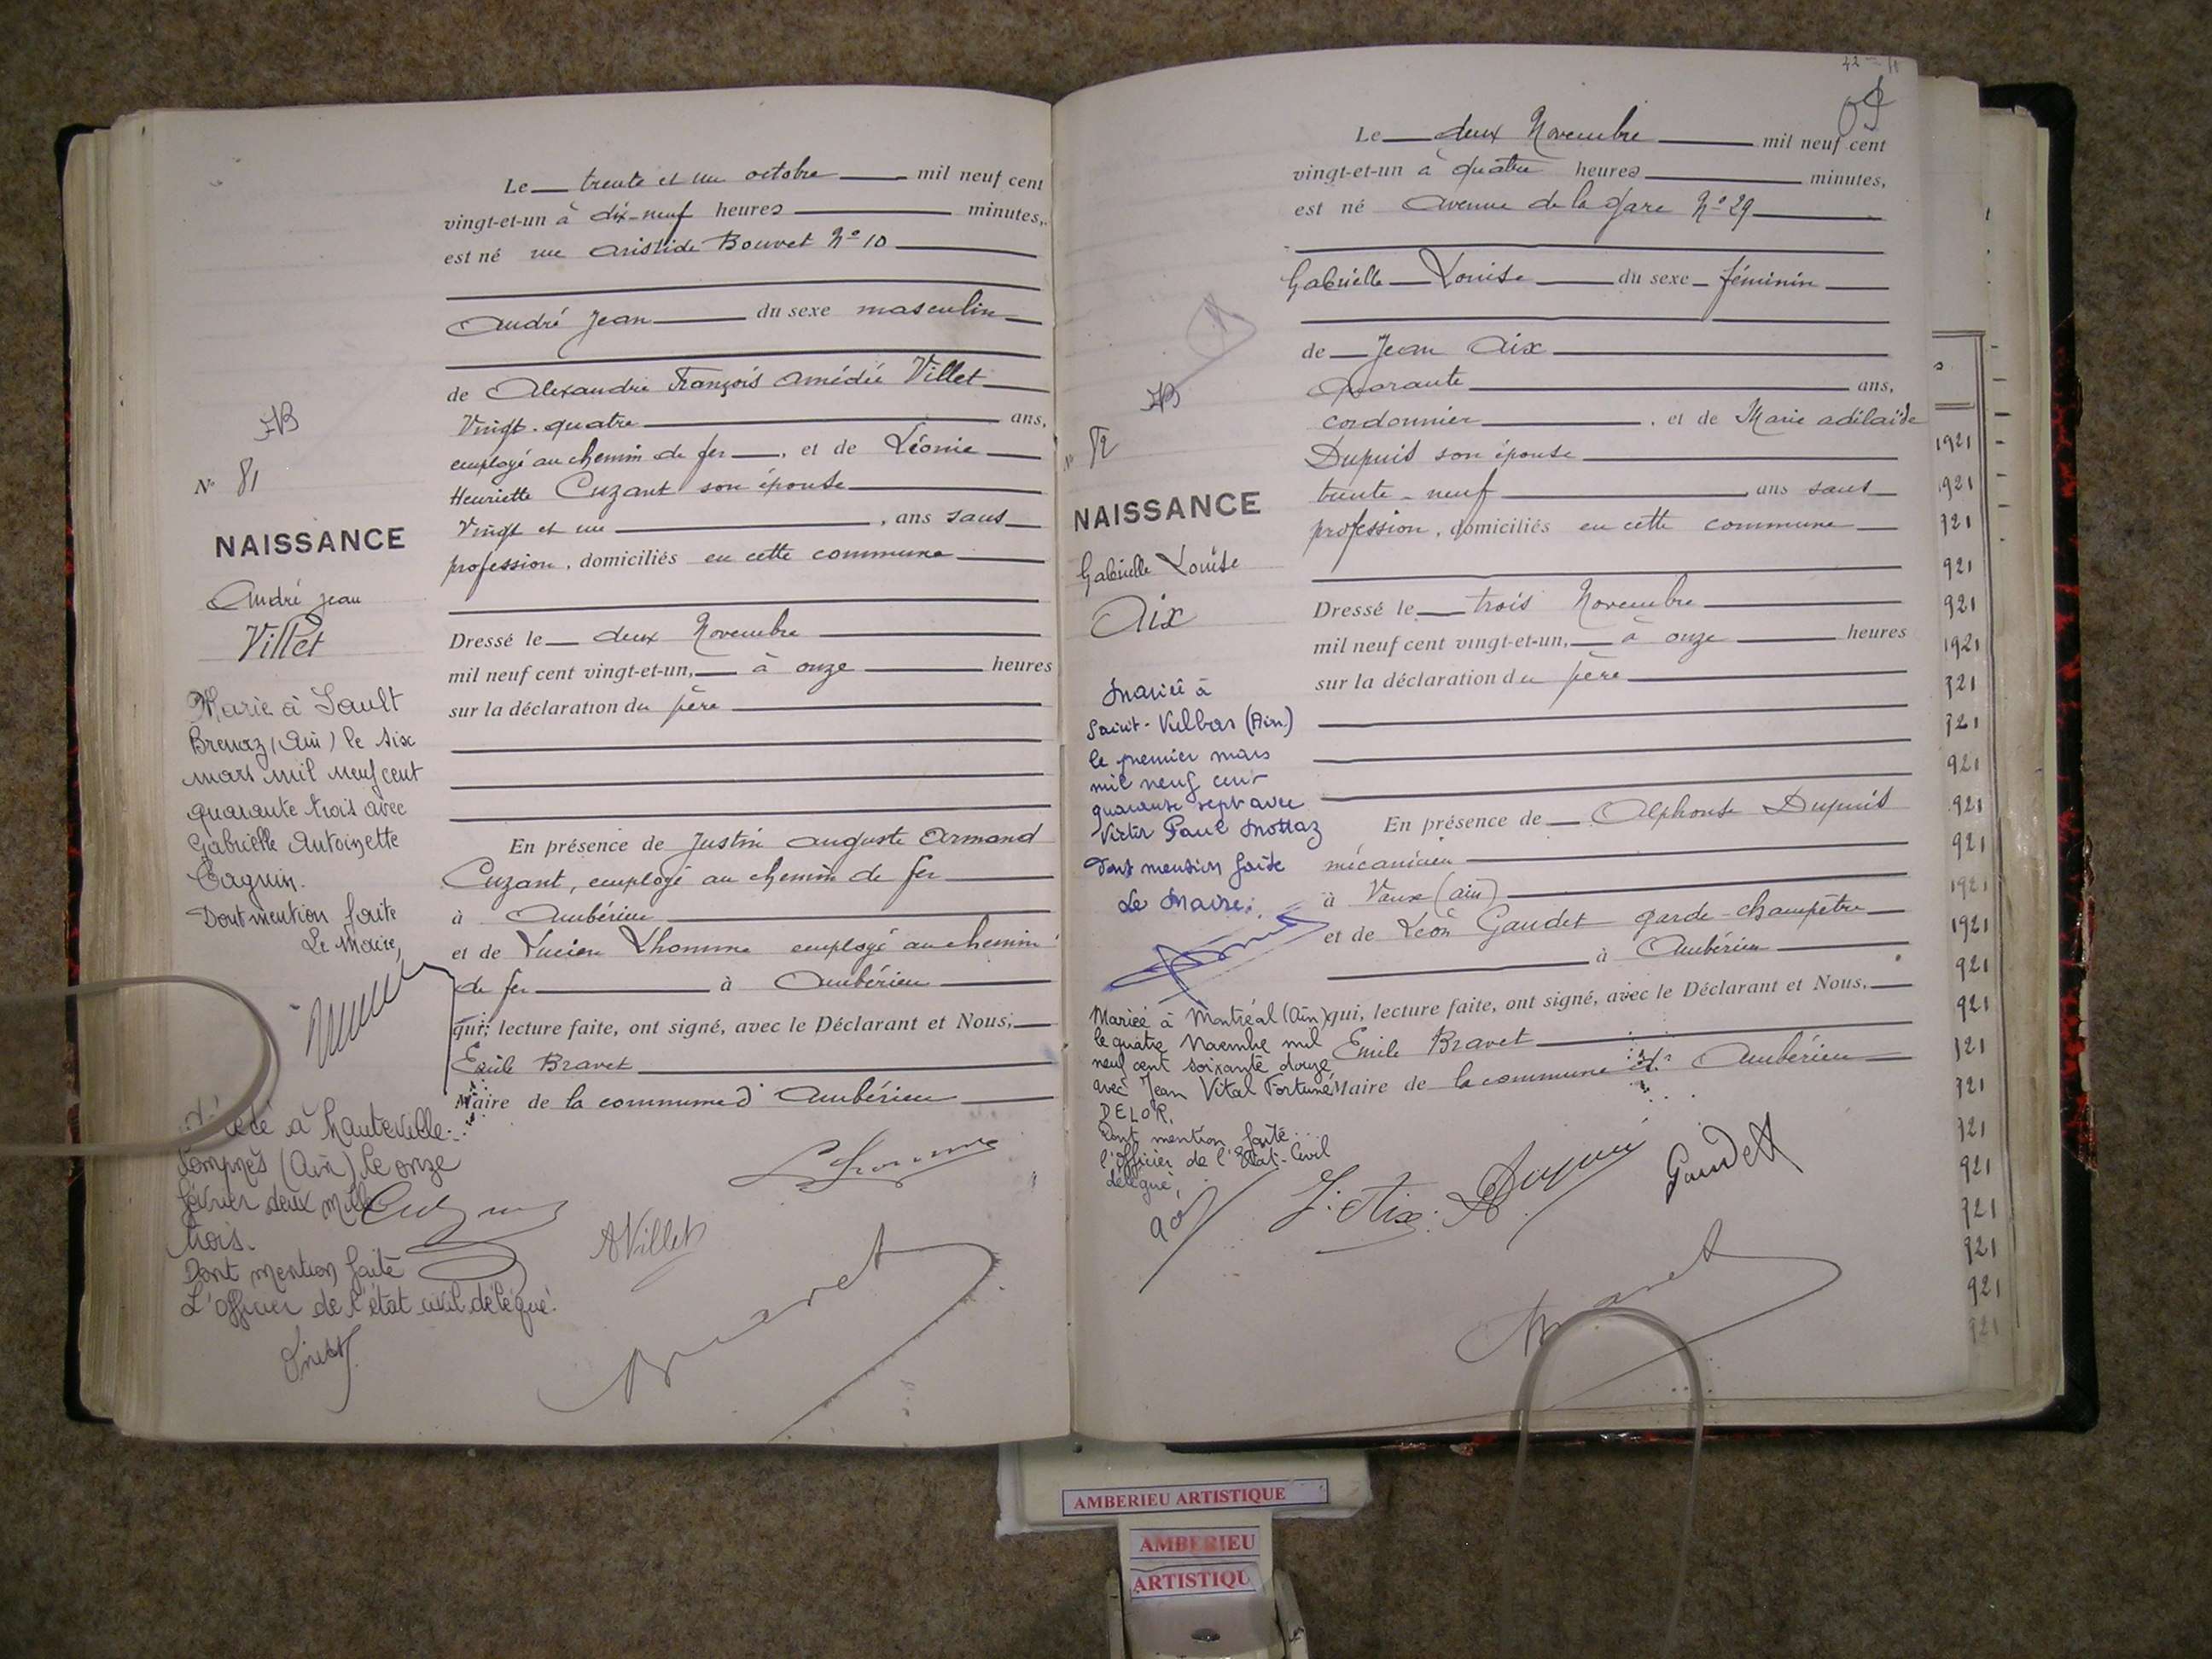 Le trente et un octobre mil neuf cent
vingt-et-un à dix-neuf heures minutes,
est né rue Aristide Bouvet No 10
André Jean du sexe masculin
de Alexandre François Amédée Villet
Vingt-quatre ans,
employé au chemin de fer, et de Léonie
Henriette Cuzant son épouse
Vingt et un, ans sans
profession, domiciliés en cette commune
Dressé le deux Novembre
mil neuf cent vingt-et-un, à onze heures
sur la déclaration du père
En présence de Justin Auguste Armand
Cuzant, employé au chemin de fer
à Ambérieu
et de Lucien Lhomme employé au chemin
de fer à Ambérieu
qui, lecture faite, ont signé, avec le Déclarant et Nous,
Emile Bravet
Maire de la commune d'Ambérieu
Lhomme
AVillet
Bravet
No 81
NAISSANCE
André Jean
Villet
Marié à Sault
Brenaz (Ain) le six
mars mil neuf cent
quarante trois avec
Gabrielle Antoinette
Dont mention faite
Le Maire,
à Hauteville-
Lompnes (Ain) le onze
février deux mille
trois.
Dont mention faite
L'officier de l'état civil délégué.
Le deux Novembre mil neuf cent
vingt-et-un à quatre heures minutes,
est né Avenue de la Gare No 29
Gabrielle Louise du sexe féminin
de Jean Aix
Quarante ans,
cordonnier, et de Marie adélaïde
Dupuis son épouse
trente-neuf, ans sans
profession, domiciliés en cette commune
Dressé le trois Novembre
mil neuf cent vingt-et-un, à onze heures
sur la déclaration du père
En présence de Alphonse Dupuis
mécanicien
à Vaux (ain)
et de Léon Gaudet garde-champêtre
à Ambérieu
qui, lecture faite, ont signé, avec le Déclarant et Nous,
Emile Bravet
Maire de la commune d'Ambérieu
J. Aix
Dupuis
Gaudet
Bravet
No 82
NAISSANCE
Gabrielle Louise
Aix
Mariée à
Saint-Vulbas (Ain)
le premier mars
mil neuf cent
quarante sept avec
Victor Paul Mottaz
Dont mention faite
Le Maire:
Mariée à Montréal (Ain)
le quatre Novembre mil
neuf cent soixante douze
avec Jean Vital Fortuné
DELOR.
Dont mention faite
l'officier de l'Etat-Civil
délégué,
1921
921
921
921
921
1921
921
921
921
921
921
1921
1921
921
921
921
921
921
921
921
921
921
921
AMBERIEU ARTISTIQUE
AMBERIEU
ARTISTIQU